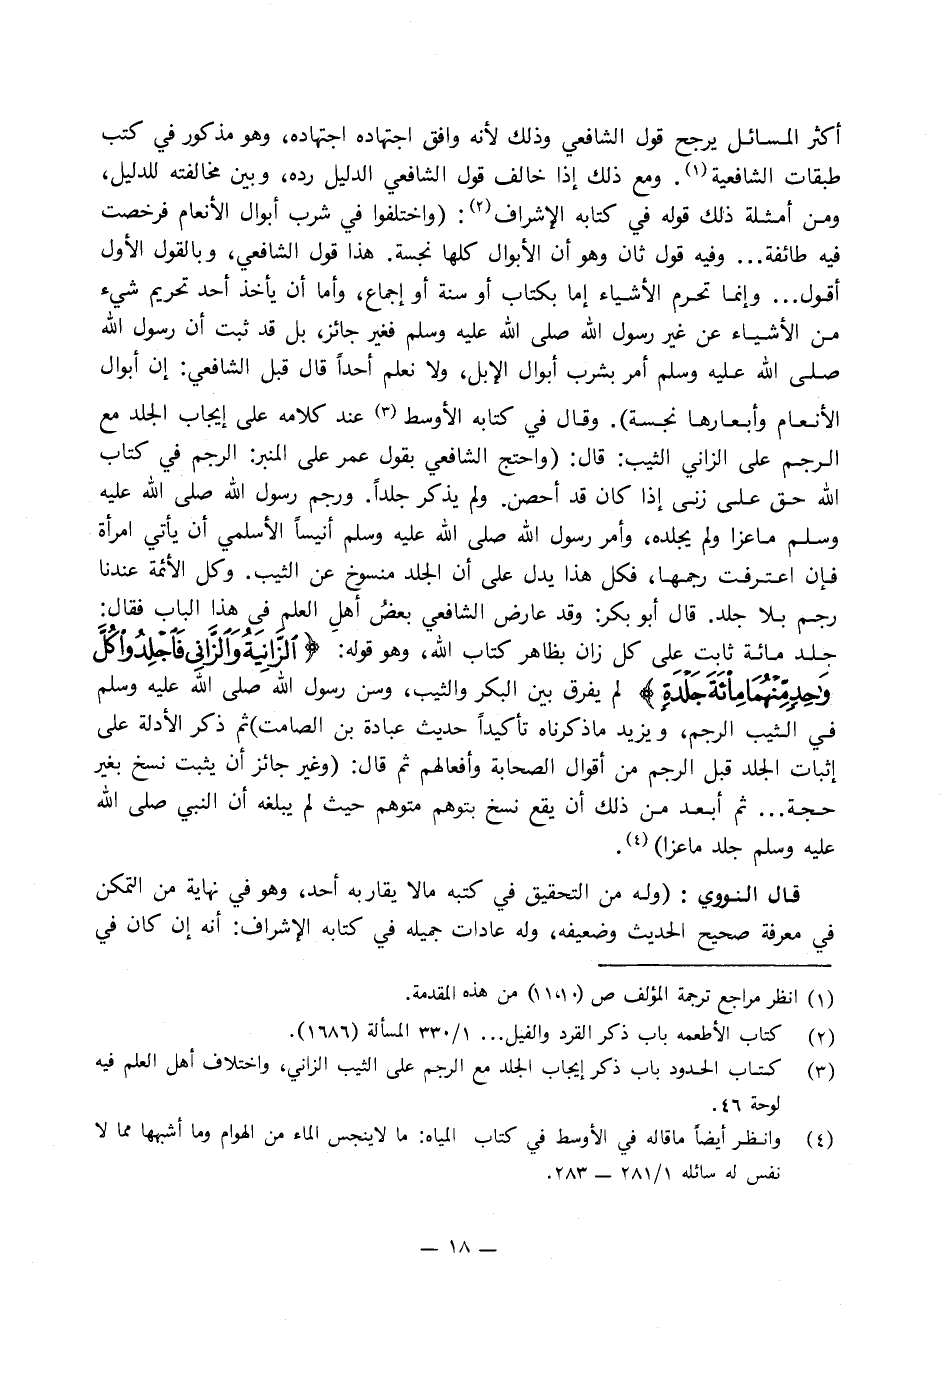 أكثر المسائل يرجح قول الشافعي وذلك لأنه وافق اجتهاده اجتهاده، وهو مذكور في كتب
طبقات الشافعية(١). ومع ذلك إذا خالف قول الشافعي الدليل رده، وبين مخالفته للدليل،
ومن أمثلة ذلك قوله في كتابه الإشراف(٢): (واختلفوا في شرب أبوال الأنعام فرخصت
فيه طائفة... وفيه قول ثان وهو أن الأبوال كلها نجسة. هذا قول الشافعي، وبالقول الأول
أقول... وإنما تحرم الأشياء إما بكتاب أو سنة أو إجماع، وأما أن يأخذ أحد تحريم شيء
من الأشياء عن غير رسول الله صلى الله عليه وسلم فغير جائز، بل قد ثبت أن رسول الله
صلى الله عليه وسلم أمر بشرب أبوال الإبل، ولا نعلم أحداً قال قبل الشافعي: إن أبوال
الأنعام وأبعارها نجسة). وقال في كتابه الأوسط(٣) عند كلامه على إيجاب الجلد مع
الرجم على الزاني الثيب: قال: (واحتج الشافعي بقول عمر على المنبر: الرجم في كتاب
الله حق على زنى إذا كان قد أحصن. ولم يذكر جلداً. ورجم رسول الله صلى الله عليه
وسلم ماعزا ولم يجلده، وأمر رسول الله صلى الله عليه وسلم أنيساً الأسلمي أن يأتي امرأة
فإن اعترفت رجمها، فكل هذا يدل على أن الجلد منسوخ عن الثيب. وكل الأئمة عندنا
رجم بلا جلد. قال أبو بكر: وقد عارض الشافعي بعضُ أهلِ العلم في هذا الباب فقال:
جلد مائة ثابت على كل زان بظاهر كتاب الله، وهو قوله: ﴿ ٱلزَّانِيَةُ وَٱلزَّانِي فَٱجْلِدُوا۟ كُلَّ
وَٰحِدٍ مِّنْهُمَا مِا۟ئَةَ جَلْدَةٍ ﴾ لم يفرق بين البكر والثيب، وسن رسول الله صلى الله عليه وسلم
في الثيب الرجم، ويزيد ماذكرناه تأكيداً حديث عبادة بن الصامت)ثم ذكر الأدلة على
إثبات الجلد قبل الرجم من أقوال الصحابة وأفعالهم ثم قال: (وغير جائز أن يثبت نسخ بغير
حجة... ثم أبعد من ذلك أن يقع نسخ بتوهم متوهم حيث لم يبلغه أن النبي صلى الله
عليه وسلم جلد ماعزا)(٤).
قال النووي : (وله من التحقيق في كتبه مالا يقاربه أحد، وهو في نهاية من التمكن
في معرفة صحيح الحديث وضعيفه، وله عادات جميله في كتابه الإشراف: أنه إن كان في
(١) انظر مراجع ترجمة المؤلف ص (١١،١٠) من هذه المقدمة.
(٢) كتاب الأطعمه باب ذكر القرد والفيل... ٣٣٠/١ المسألة (١٦٨٦).
(٣) كتاب الحدود باب ذكر إيجاب الجلد مع الرجم على الثيب الزاني، واختلاف أهل العلم فيه
لوحة ٤٦.
(٤) وانظر أيضاً ماقاله في الأوسط في كتاب المياه: ما لاينجس الماء من الهوام وما أشبهها مما لا
نفس له سائله ٢٨١/١ — ٢٨٣.
— ١٨ —